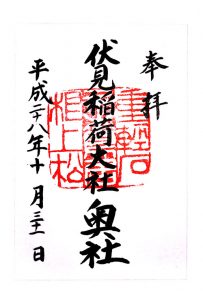 奉拝
伏見稲荷大社奥社
重軽石
根上松
平成二十八年十月三十一日